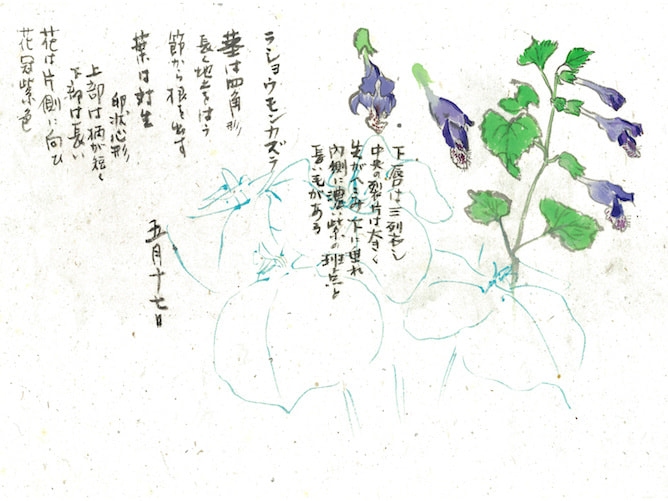 ラショウモンカズラ
茎は四角形
長く地上をはう
節から根を出す
葉は対生
卵状心形
上部は柄が短く
下部は長い
花は片側に向ひ
花冠紫色
五月十七日
下唇は三列衣し
中央の裂片は大きく
先がへこみ下に垂れ
内側に濃い紫の斑点と
長い毛がある